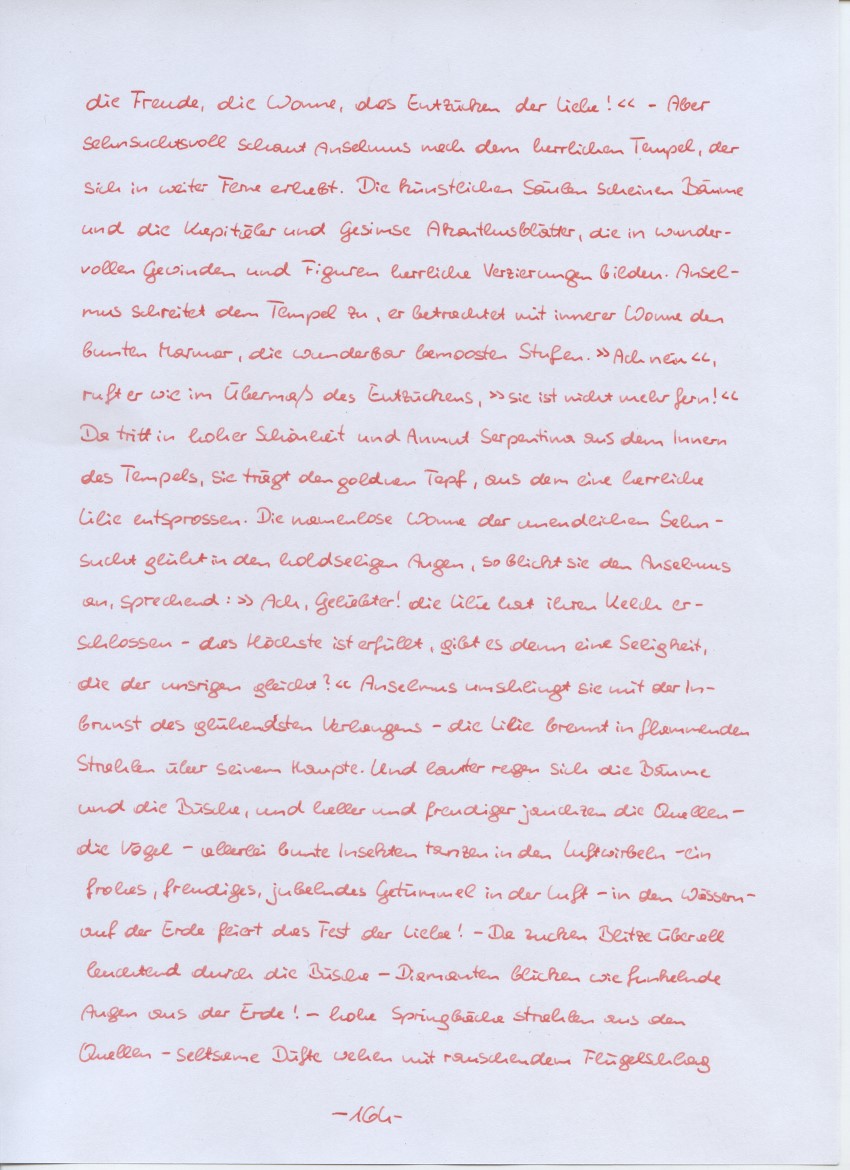 die Freude, die Wonne, das Entzücken der Liebe!«« – Aber
sehnsuchtsvoll schaut Anselmus nach dem herrlichen Tempel, der
sich in weiter Ferne erhebt. Die künstlichen Säulen scheinen Bäume
und die Kapitäler und Gesimse Akanthusblätter, die in wunder-
vollen Gewinden und Figuren herrliche Verzierungen bilden. Ansel-
mus schreitet dem Tempel zu, er betrachtet mit innerer Wonne den
bunten Marmor, die wunderbar bemoosten Stufen. »Ach nein«,
ruft er wie im Übermaß des Entzückens, »sie ist nicht mehr fern!«
Da tritt in hoher Schönheit und Anmut Serpentina aus dem Innern
des Tempels, sie trägt den goldnen Topf, aus dem eine herrliche
Lilie entsprossen. Die namenlose Wonne der unendlichen Sehn-
sucht glüht in den holdseligen Augen, so blickt sie den Anselmus
an, sprechend: »Ach, Geliebter! die Lilie hat ihren Kelch er-
schlossen – das Höchste ist erfüllt, gibt es denn eine Seligkeit,
die der unsrigen gleicht?« Anselmus umschlingt sie mit der In-
brunst des glühendsten Verlangens – die Lilie brennt in flammenden
Strahlen über seinem Haupte. Und lauter regen sich die Bäume
und die Büsche, und heller und freudiger jauchzen die Quellen –
die Vögel – allerlei bunte Insekten tanzen in den Luftwirbeln – ein
frohes, freudiges, jubelndes Getümmel in der Luft – in den Wässern –
auf der Erde feiert das Fest der Liebe! – Da zucken Blitze überall
leuchtend durch die Büsche – Diamanten blicken wie funkelnde
Augen aus der Erde! – hohe Springbäche strahlen aus den
Quellen – seltsame Düfte wehen mit rauschendem Flügelschlag
– 164 –